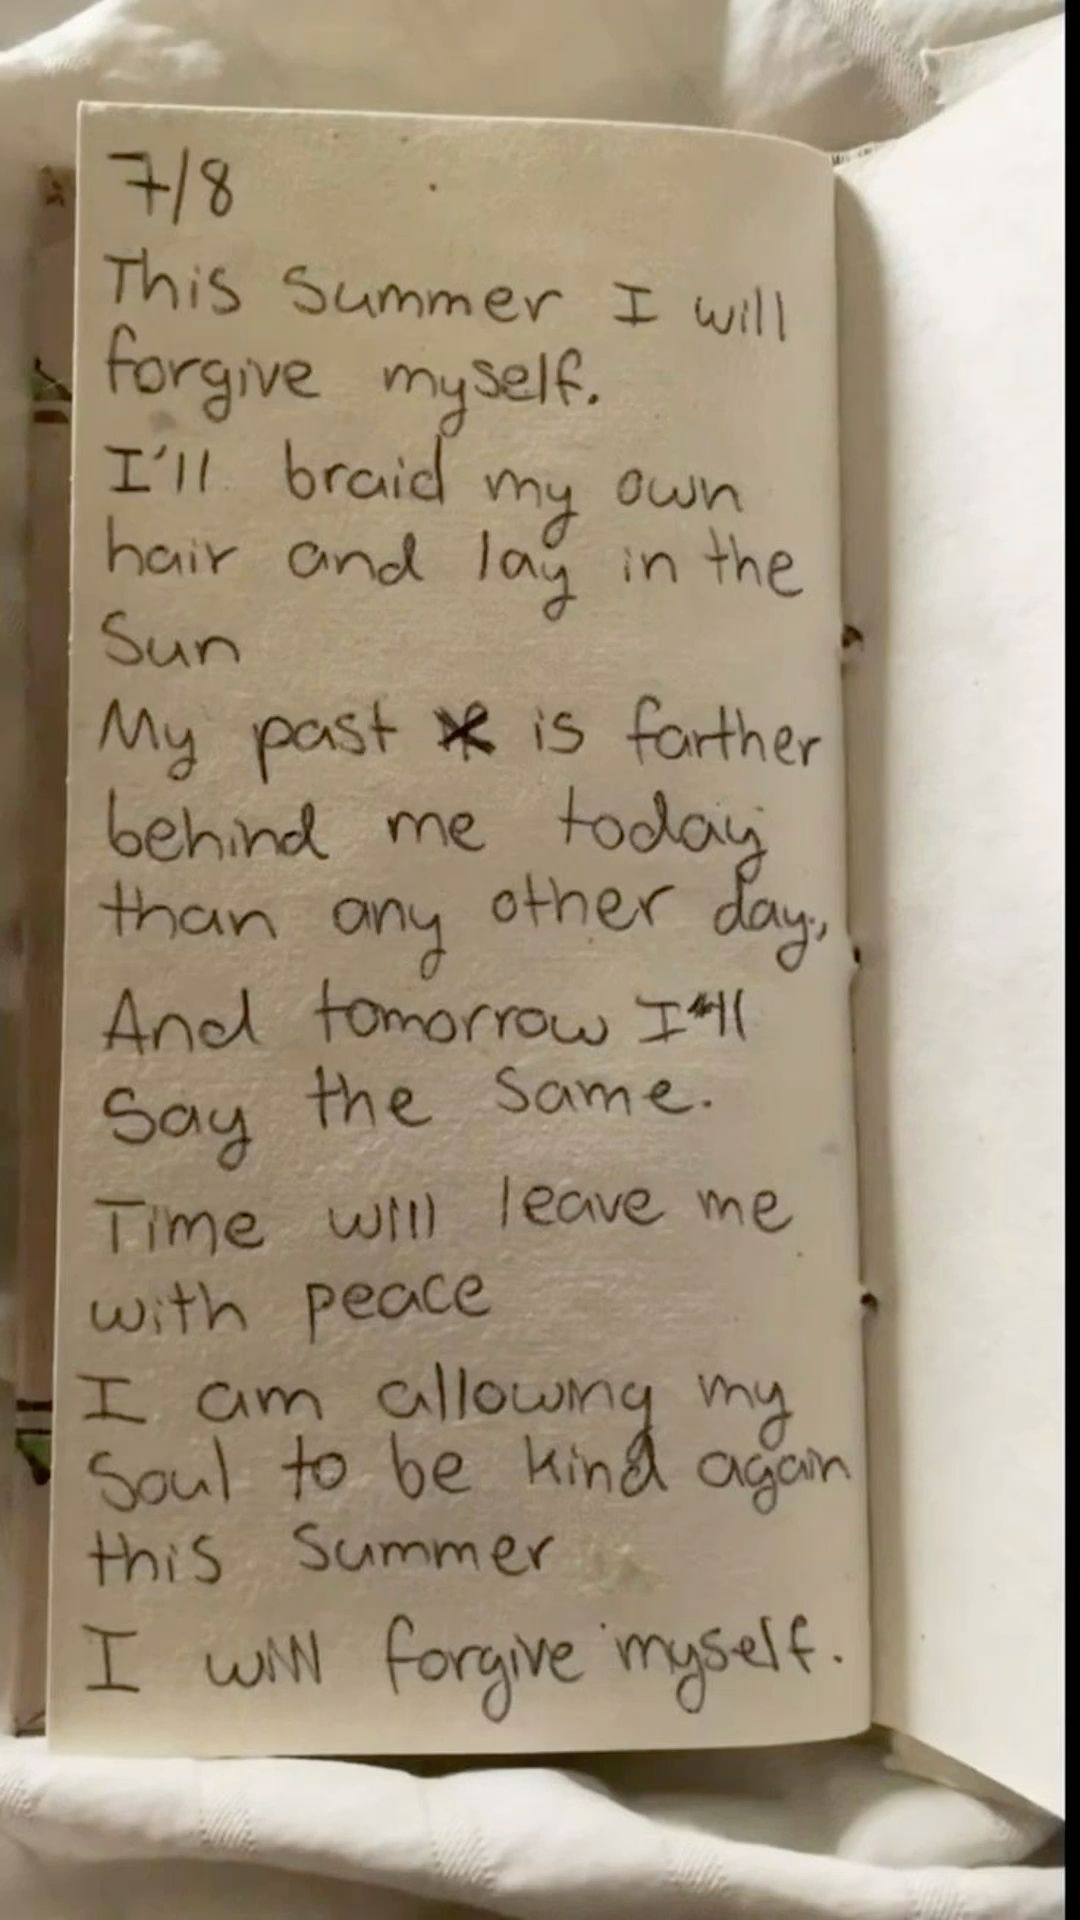 7/8
This Summer I will
forgive myself.
I'll braid my own
hair and lay in the
Sun
My past is farther
behind me today
than any other day,
And tomorrow I'll
Say the Same.
Time will leave me
with peace
I am allowing my
Soul to be kind again
this Summer
I will forgive myself.